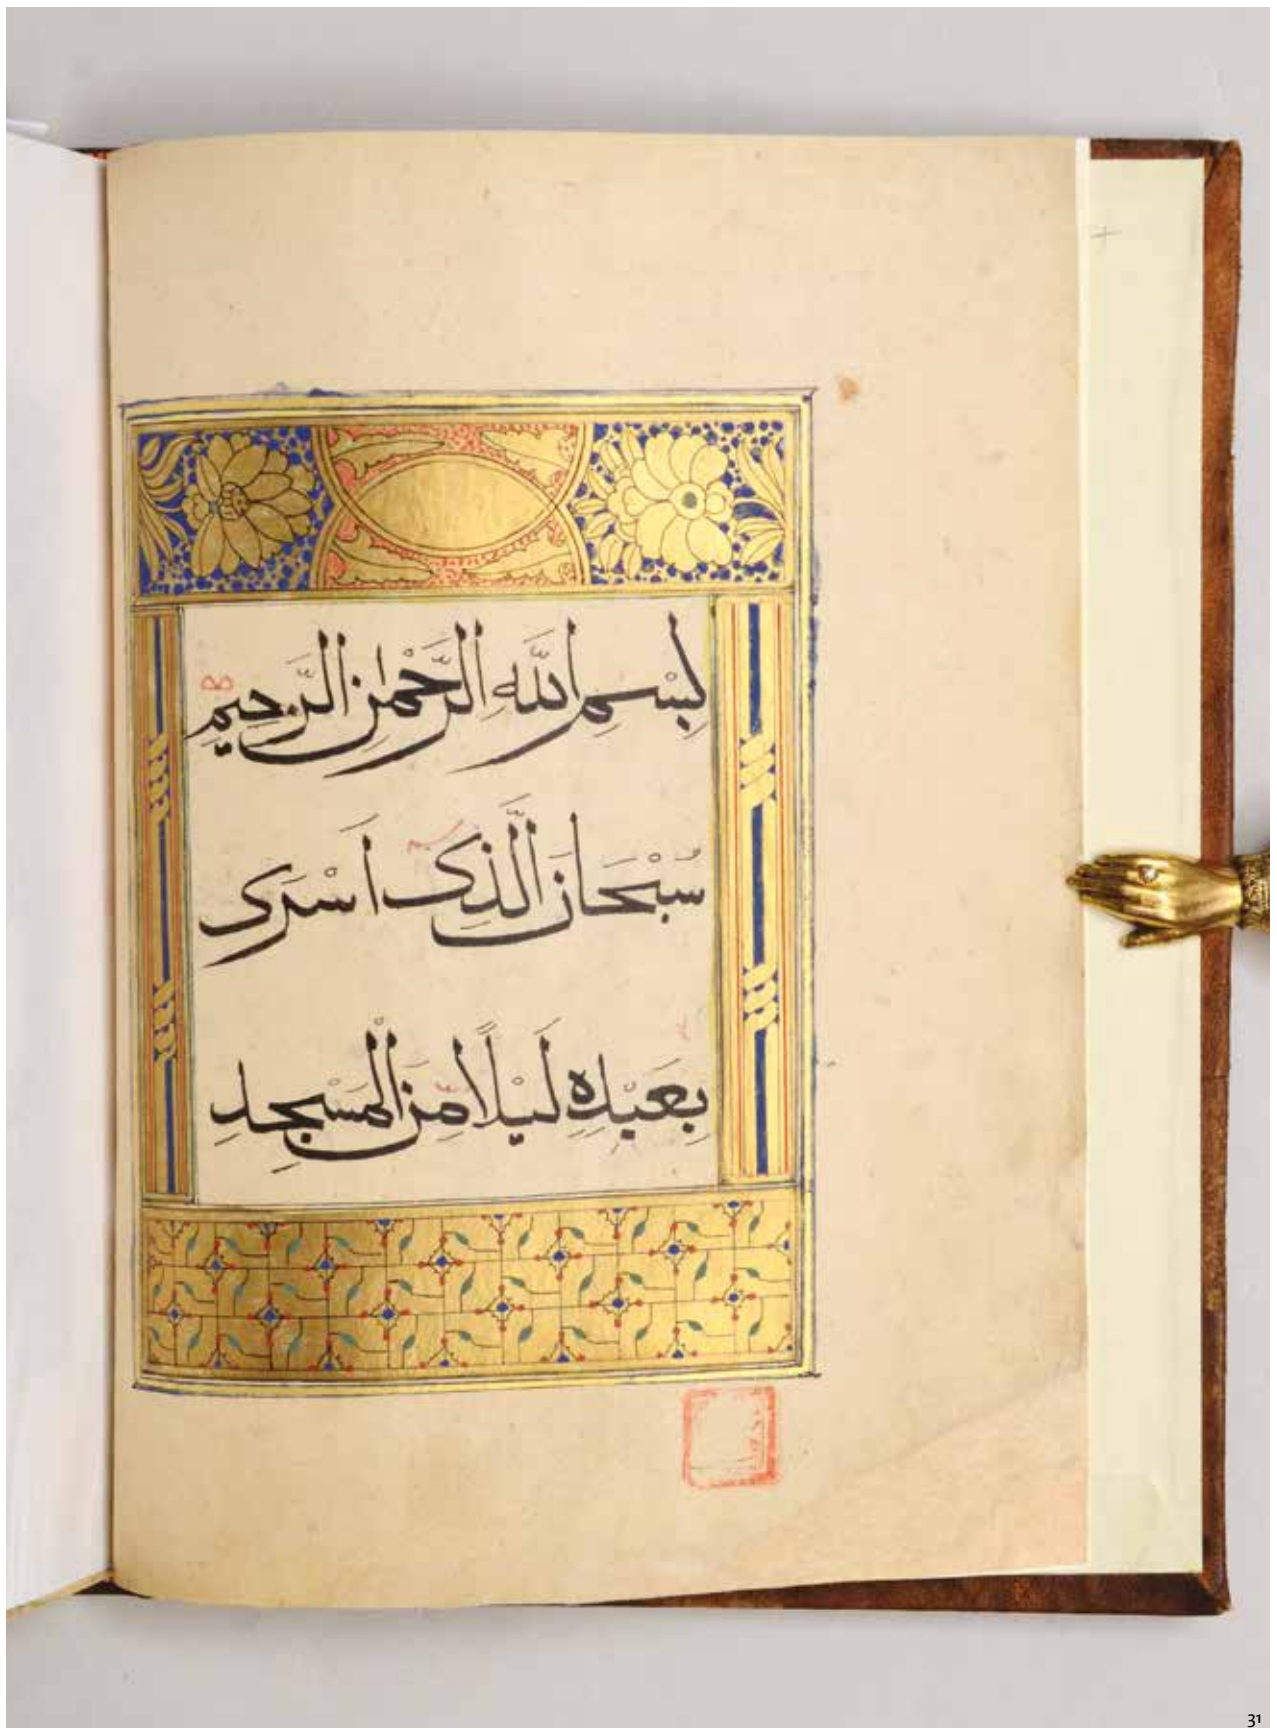 بِسْمِ اللَّهِ الرَّحْمٰنِ الرَّحِيمِ
سُبْحَانَ الَّذِى أَسْرَى
بِعَبْدِهِ لَيْلًا مِنَ الْمَسْجِدِ
31